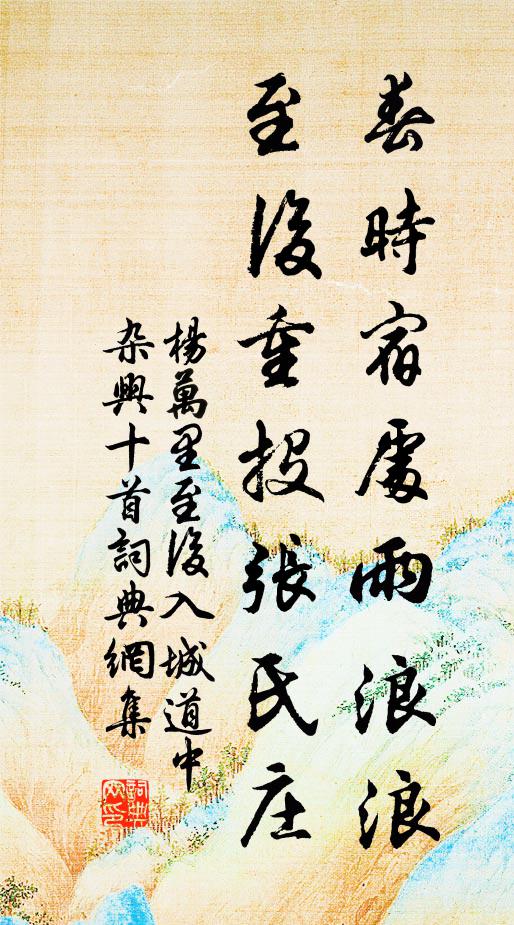 春時宿處雨浪浪
至後重投張氏庄
楊萬里至後入城道中
杂興十首詞典網集
詞典